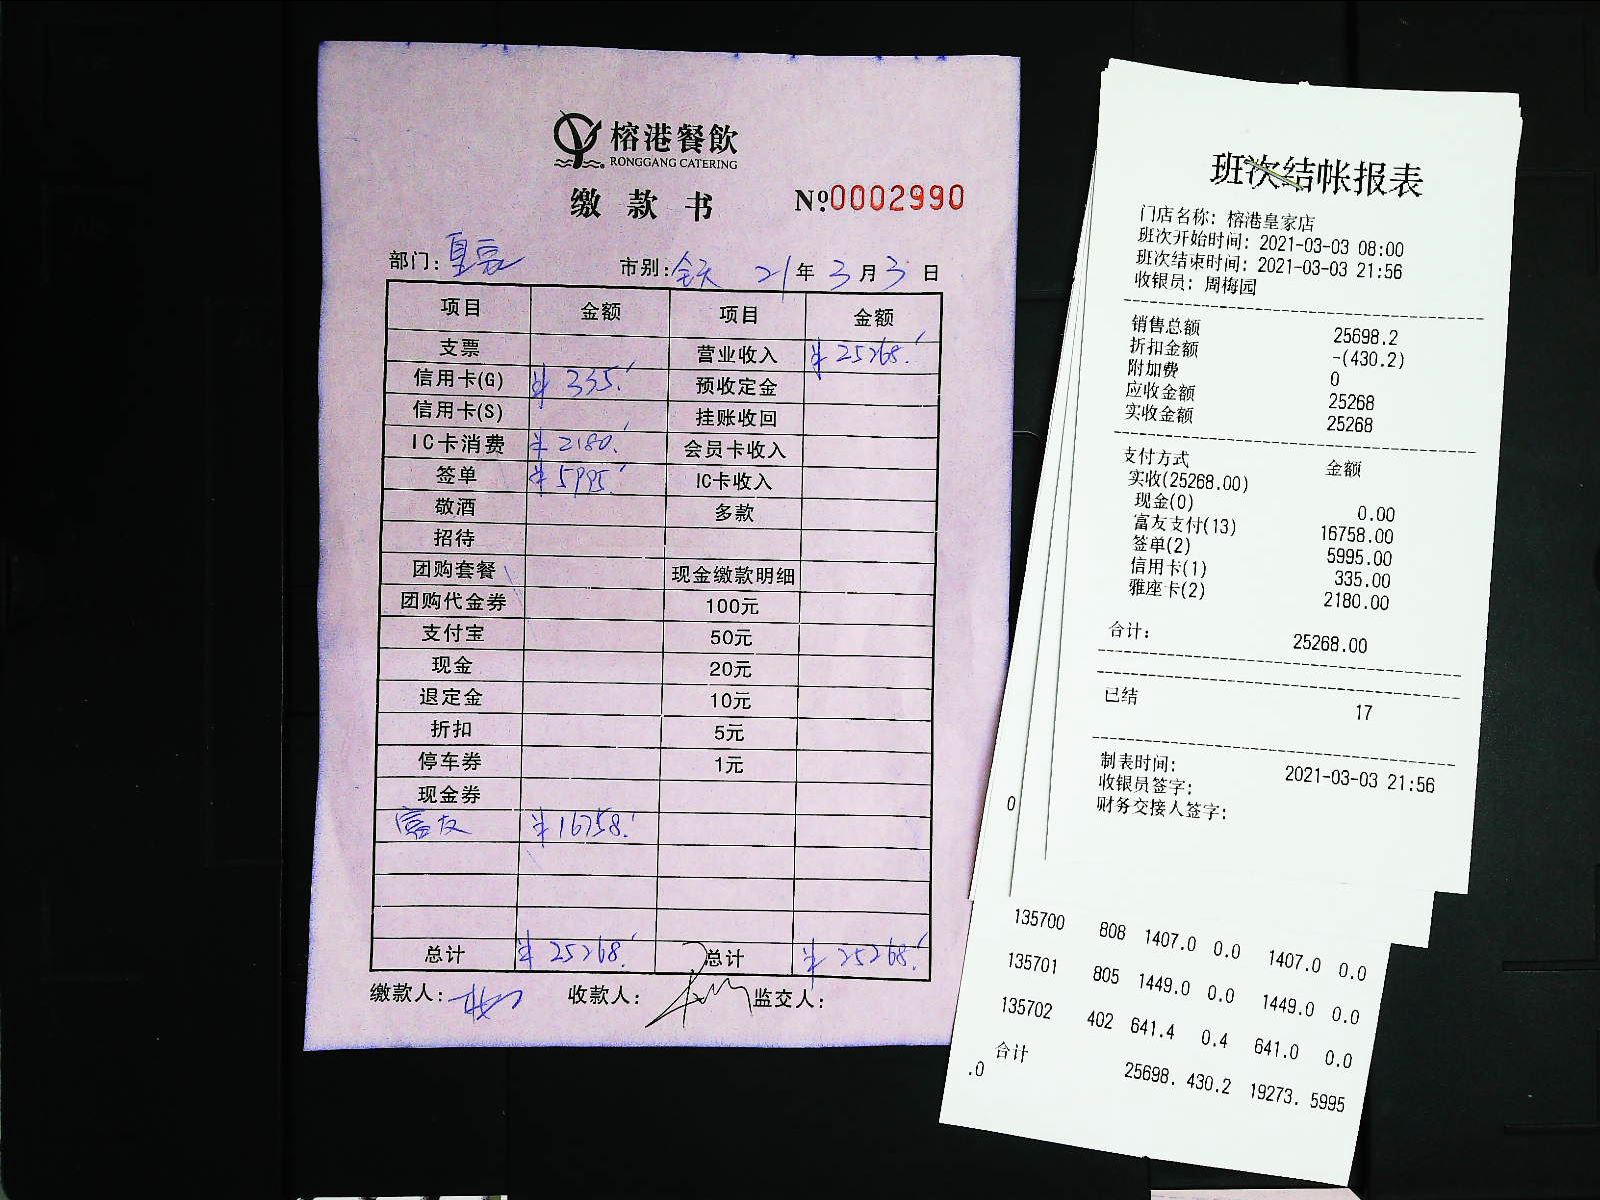 榕港餐飲
RONGGANG CATERING
缴款书 №0002990
部门:皇家 市别:全天 21年3月3日
项目 金额 项目 金额
支票 营业收入 ¥25268.
信用卡(G) ¥335. 预收定金
信用卡(S) 挂账收回
IC卡消费 ¥2180. 会员卡收入
签单 ¥5995. IC卡收入
敬酒 多款
招待
团购套餐 现金缴款明细
团购代金券 100元
支付宝 50元
现金 20元
退定金 10元
折扣 5元
停车券 1元
现金券
富友 ¥16758.
总计 ¥25268. 总计 ¥25268.
缴款人: 收款人: 监交人:
班次结帐报表
门店名称: 榕港皇家店
班次开始时间: 2021-03-03 08:00
班次结束时间: 2021-03-03 21:56
收银员: 周梅园
销售总额 25698.2
折扣金额 -(430.2)
附加费 0
应收金额 25268
实收金额 25268
支付方式 金额
实收(25268.00)
现金(0) 0.00
富友支付(13) 16758.00
签单(2) 5995.00
信用卡(1) 335.00
雅座卡(2) 2180.00
合计: 25268.00
已结 17
制表时间: 2021-03-03 21:56
收银员签字:
财务交接人签字:
0
135700 808 1407.0 0.0 1407.0 0.0
135701 805 1449.0 0.0 1449.0 0.0
135702 402 641.4 0.4 641.0 0.0
合计 25698. 430.2 19273. 5995
.0